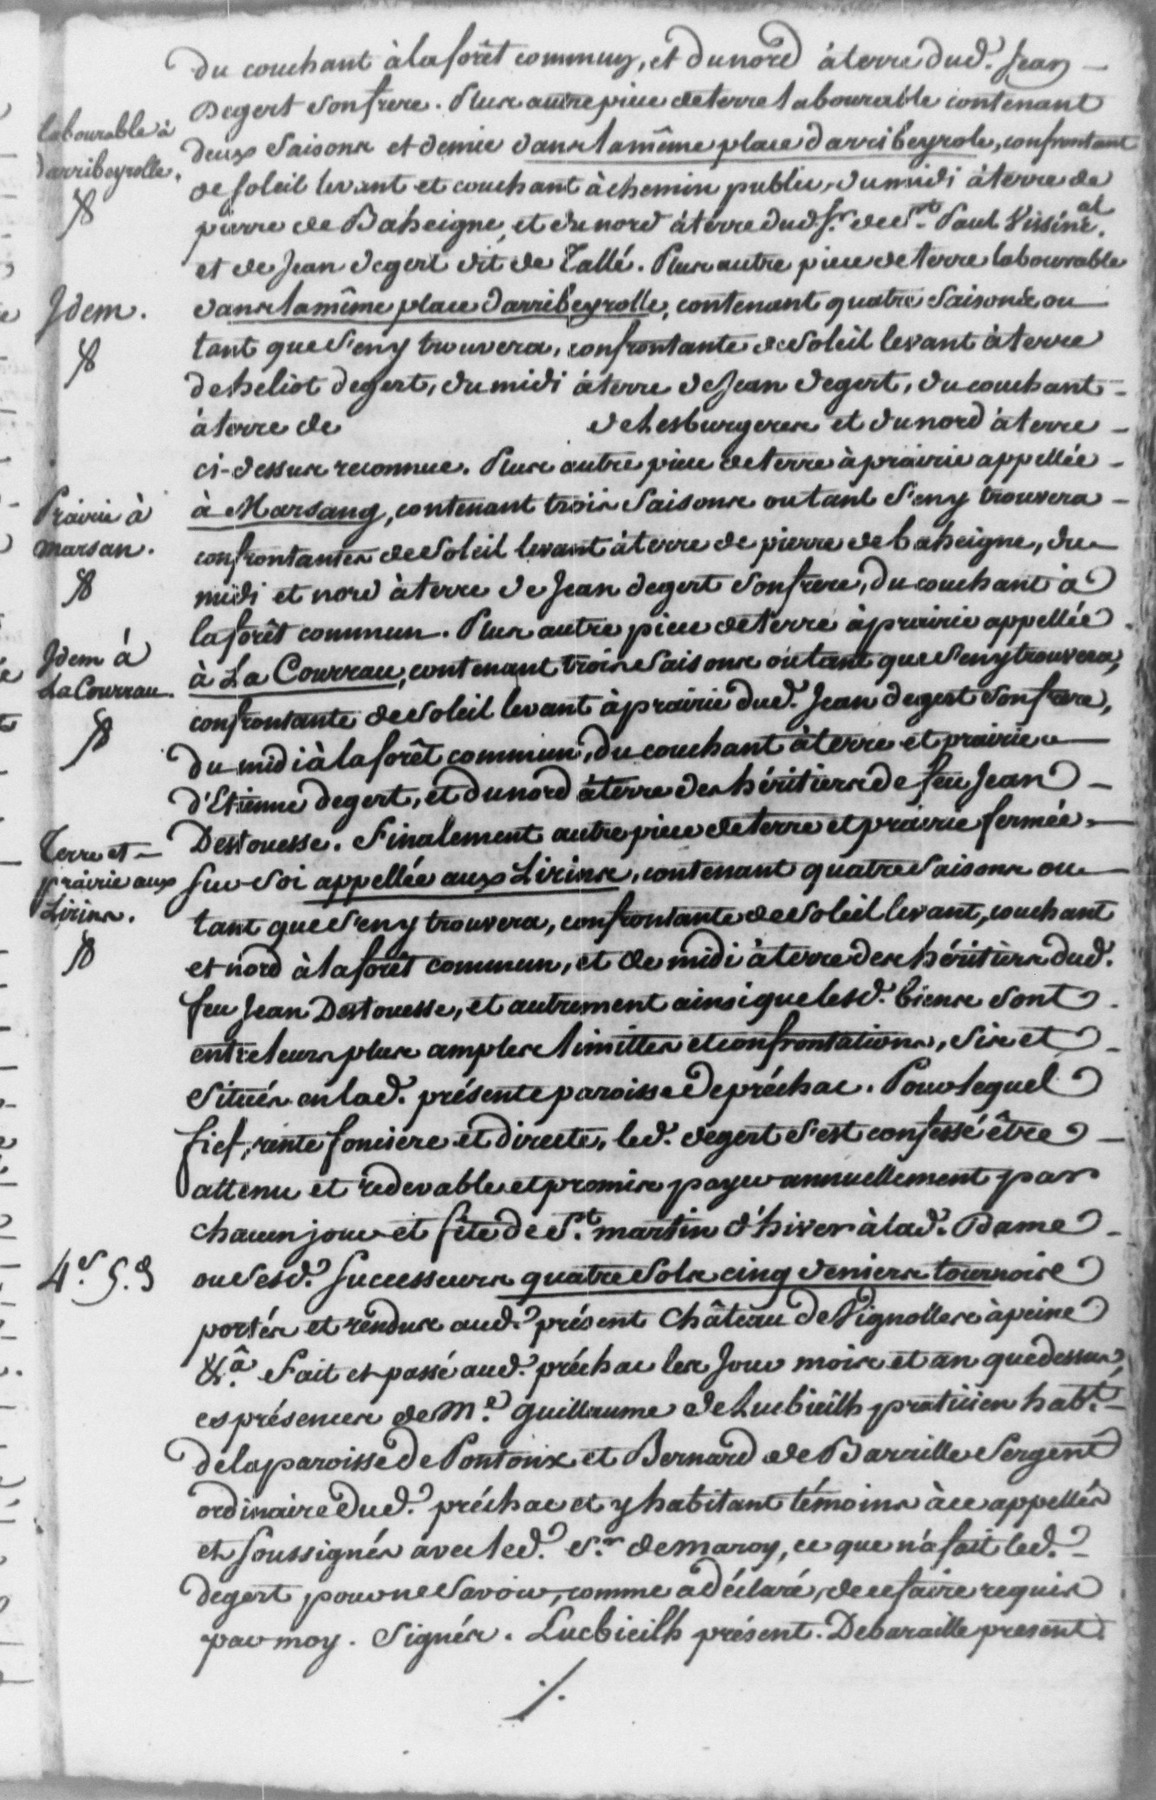 du couchant à la forêt commun, et du nord à terre dud. Jean
Degert son frere. Plus autre piece de terre labourable contenant
labourable à
darribeyrolle.
deux saisons et demie dans la même place darribeyrole, confrontant
de soleil levant et couchant à chemin public, du midi à terre de
pierre de Baheigne, et du nord à terre dud. sr. de St. Paul
et de Jean degert dit de Tallé. Plus autre piece de terre labourable
Idem.
dans la même place darribeyrolle, contenant quatre saisons ou
tant que s'en y trouvera, confrontante de soleil levant à terre
de heliot degert, du midi à terre de Jean degert, du couchant
à terre de de Lesburgeres et du nord à terre
ci-dessus reconnue. Plus autre piece de terre à prairie appellée
Prairie à
marsan.
à Marsang, contenant trois saisons ou tant s'en y trouvera
confrontantes de soleil levant à terre de pierre de baheigne, du
midi et nord à terre de Jean degert son frere, du couchant à
la forêt commun. Plus autre piece de terre à prairie appellée
Idem à
La Courrau.
à La Courrau, contenant trois saisons ou tant que s'en y trouvera,
confrontante de soleil levant à prairie dud. Jean degert son frere,
du midi à la forêt commun, du couchant à terre et prairie
d'Etienne degert, et du nord à terre des héritiers de feu Jean
Destouesse. Finalement autre piece de terre et prairie fermée
Terre et
prairie aux
Lirins.
sur soi appellée aux Lirins, contenant quatre saisons ou
tant que s'en y trouvera, confrontante de soleil levant, couchant
et nord à la forêt commun, et de midi à terre des héritiers dud.
feu Jean Destouesse, et autrement ainsi que lesd. biens sont
entre leurs plus amples limittes et confrontations, sis et
situés en lad. présente paroisse de préchac. Pour lequel
fief, rente fonciere et directe, led. degert s'est confessé être
attenu et redevable et promis payer annuellement par
chacun jour et fête de St. martin d'hiver à lad. Dame
4.s 5.d
ou sesd. successeurs quatre sols cinq deniers tournois
portés et rendus aud. présent Château de Vignolles à peine
&.a Fait et passé aud. préchac les jour mois et an que dessus,
es présences de Me. guillaume de Lucbieilh praticien habt.
de la paroisse de Pontonx et Bernard de Baraille sergent
ordinaire dud. préchac et y habitant témoins à ce appellés
et soussignés avec led. sr. de maroy, ce que n'a fait led.
degert pour ne savoir, comme a déclaré, de ce faire requis
par moy. Signés. Lucbieilh présent. Debaraille present.